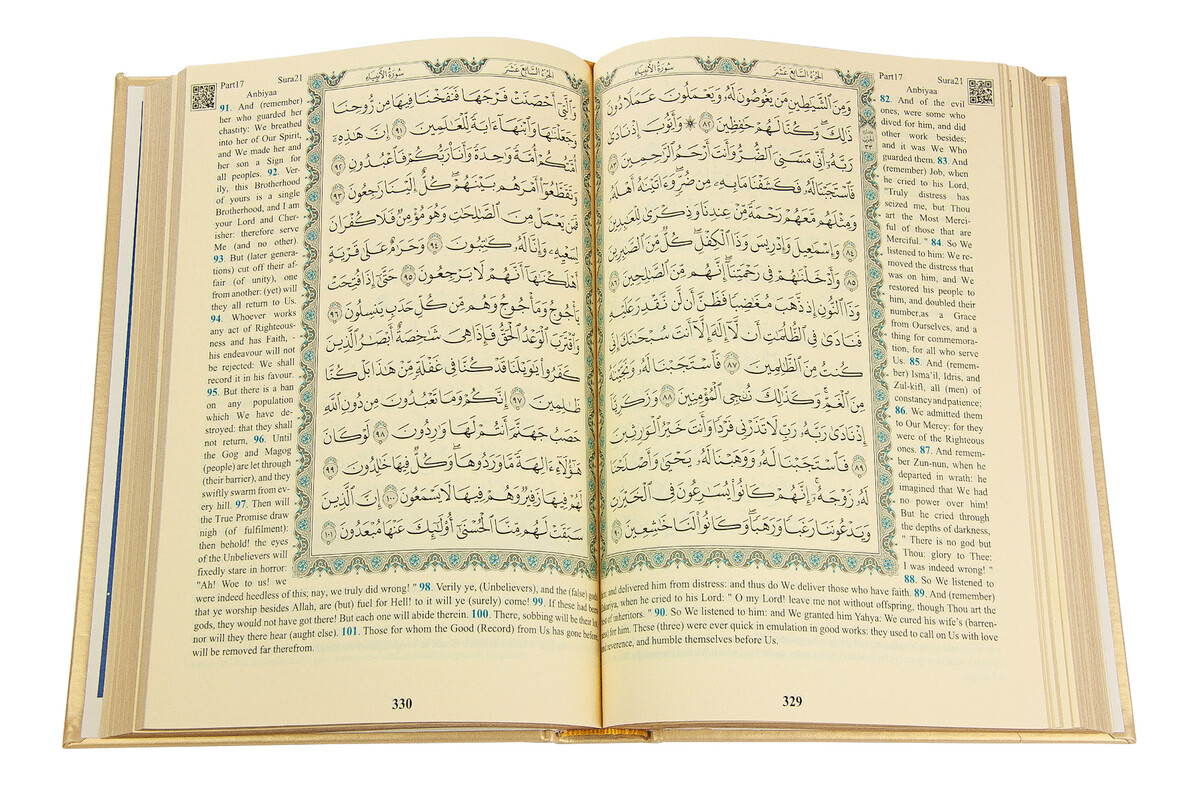 الجزء السابع عشر سورة الأنبياء
وَمِنَ ٱلشَّيَٰطِينِ مَن يَغُوصُونَ لَهُۥ وَيَعْمَلُونَ عَمَلًا دُونَ
ذَٰلِكَ ۖ وَكُنَّا لَهُمْ حَٰفِظِينَ ٨٢ ۞ وَأَيُّوبَ إِذْ نَادَىٰ
رَبَّهُۥٓ أَنِّى مَسَّنِىَ ٱلضُّرُّ وَأَنتَ أَرْحَمُ ٱلرَّٰحِمِينَ ٨٣
فَٱسْتَجَبْنَا لَهُۥ فَكَشَفْنَا مَا بِهِۦ مِن ضُرٍّ ۖ وَءَاتَيْنَٰهُ أَهْلَهُۥ
وَمِثْلَهُم مَّعَهُمْ رَحْمَةً مِّنْ عِندِنَا وَذِكْرَىٰ لِلْعَٰبِدِينَ
٨٤ وَإِسْمَٰعِيلَ وَإِدْرِيسَ وَذَا ٱلْكِفْلِ ۖ كُلٌّ مِّنَ ٱلصَّٰبِرِينَ
٨٥ وَأَدْخَلْنَٰهُمْ فِى رَحْمَتِنَآ ۖ إِنَّهُم مِّنَ ٱلصَّٰلِحِينَ ٨٦
وَذَا ٱلنُّونِ إِذ ذَّهَبَ مُغَٰضِبًا فَظَنَّ أَن لَّن نَّقْدِرَ عَلَيْهِ
فَنَادَىٰ فِى ٱلظُّلُمَٰتِ أَن لَّآ إِلَٰهَ إِلَّآ أَنتَ سُبْحَٰنَكَ إِنِّى
كُنتُ مِنَ ٱلظَّٰلِمِينَ ٨٧ فَٱسْتَجَبْنَا لَهُۥ وَنَجَّيْنَٰهُ
مِنَ ٱلْغَمِّ ۚ وَكَذَٰلِكَ نُۨجِى ٱلْمُؤْمِنِينَ ٨٨ وَزَكَرِيَّآ
إِذْ نَادَىٰ رَبَّهُۥ رَبِّ لَا تَذَرْنِى فَرْدًا وَأَنتَ خَيْرُ ٱلْوَٰرِثِينَ
٨٩ فَٱسْتَجَبْنَا لَهُۥ وَوَهَبْنَا لَهُۥ يَحْيَىٰ وَأَصْلَحْنَا
لَهُۥ زَوْجَهُۥٓ ۚ إِنَّهُمْ كَانُوا۟ يُسَٰرِعُونَ فِى ٱلْخَيْرَٰتِ
وَيَدْعُونَنَا رَغَبًا وَرَهَبًا ۖ وَكَانُوا۟ لَنَا خَٰشِعِينَ ٩٠
Part17 Sura21
Anbiyaa
82. And of the evil
ones, were some who
dived for him, and did
other work besides;
and it was We Who
guarded them. 83. And
(remember) Job, when
he cried to his Lord,
"Truly distress has
seized me, but Thou
art the Most Merci-
ful of those that are
Merciful. " 84. So We
listened to him: We re-
moved the distress that
was on him, and We
restored his people to
him, and doubled their
number,as a Grace
from Ourselves, and a
thing for commemora-
tion, for all who serve
Us. 85. And (remem-
ber) Isma'il, Idris, and
Zul-kifl, all (men) of
constancy and patience;
86. We admitted them
to Our Mercy: for they
were of the Righteous
ones. 87. And remem-
ber Zun-nun, when he
departed in wrath: he
imagined that We had
no power over him!
But he cried through
the depths of darkness,
" There is no god but
Thou: glory to Thee:
I was indeed wrong! "
88. So We listened to
and delivered him from distress: and thus do We deliver those who have faith. 89. And (remember)
when he cried to his Lord: " O my Lord! leave me not without offspring, though Thou art the
of inheritors. " 90. So We listened to him: and We granted him Yahya: We cured his wife's (barren-
for him. These (three) were ever quick in emulation in good works: they used to call on Us with love
reverence, and humble themselves before Us.
329
سورة الأنبياء الجزء السابع عشر
وَٱلَّتِىٓ أَحْصَنَتْ فَرْجَهَا فَنَفَخْنَا فِيهَا مِن رُّوحِنَا
وَجَعَلْنَٰهَا وَٱبْنَهَآ ءَايَةً لِّلْعَٰلَمِينَ ٩١ إِنَّ هَٰذِهِۦٓ
أُمَّتُكُمْ أُمَّةً وَٰحِدَةً وَأَنَا۠ رَبُّكُمْ فَٱعْبُدُونِ ٩٢
وَتَقَطَّعُوٓا۟ أَمْرَهُم بَيْنَهُمْ ۖ كُلٌّ إِلَيْنَا رَٰجِعُونَ ٩٣
فَمَن يَعْمَلْ مِنَ ٱلصَّٰلِحَٰتِ وَهُوَ مُؤْمِنٌ فَلَا كُفْرَانَ
لِسَعْيِهِۦ وَإِنَّا لَهُۥ كَٰتِبُونَ ٩٤ وَحَرَٰمٌ عَلَىٰ قَرْيَةٍ
أَهْلَكْنَٰهَآ أَنَّهُمْ لَا يَرْجِعُونَ ٩٥ حَتَّىٰٓ إِذَا فُتِحَتْ
يَأْجُوجُ وَمَأْجُوجُ وَهُم مِّن كُلِّ حَدَبٍ يَنسِلُونَ ٩٦
وَٱقْتَرَبَ ٱلْوَعْدُ ٱلْحَقُّ فَإِذَا هِىَ شَٰخِصَةٌ أَبْصَٰرُ ٱلَّذِينَ
كَفَرُوا۟ يَٰوَيْلَنَا قَدْ كُنَّا فِى غَفْلَةٍ مِّنْ هَٰذَا بَلْ كُنَّا
ظَٰلِمِينَ ٩٧ إِنَّكُمْ وَمَا تَعْبُدُونَ مِن دُونِ ٱللَّهِ
حَصَبُ جَهَنَّمَ أَنتُمْ لَهَا وَٰرِدُونَ ٩٨ لَوْ كَانَ
هَٰٓؤُلَآءِ ءَالِهَةً مَّا وَرَدُوهَا ۖ وَكُلٌّ فِيهَا خَٰلِدُونَ ٩٩
لَهُمْ فِيهَا زَفِيرٌ وَهُمْ فِيهَا لَا يَسْمَعُونَ ١٠٠ إِنَّ ٱلَّذِينَ
سَبَقَتْ لَهُم مِّنَّا ٱلْحُسْنَىٰٓ أُو۟لَٰٓئِكَ عَنْهَا مُبْعَدُونَ ١٠١
Part17 Sura21
Anbiyaa
91. And (remember)
her who guarded her
chastity: We breathed
into her of Our Spirit,
and We made her and
her son a Sign for
all peoples. 92. Ver-
ily, this Brotherhood
of yours is a single
Brotherhood, and I am
your Lord and Cher-
isher: therefore serve
Me (and no other).
93. But (later genera-
tions) cut off their af-
fair (of unity), one
from another: (yet) will
they all return to Us.
94. Whoever works
any act of Righteous-
ness and has Faith, -
his endeavour will not
be rejected: We shall
record it in his favour.
95. But there is a ban
on any population
which We have de-
stroyed: that they shall
not return, 96. Until
the Gog and Magog
(people) are let through
(their barrier), and they
swiftly swarm from ev-
ery hill. 97. Then will
the True Promise draw
nigh (of fulfilment):
then behold! the eyes
of the Unbelievers will
fixedly stare in horror:
"Ah! Woe to us! we
were indeed heedless of this; nay, we truly did wrong! " 98. Verily ye, (Unbelievers), and the (false) gods
that ye worship besides Allah, are (but) fuel for Hell! to it will ye (surely) come! 99. If these had been
gods, they would not have got there! But each one will abide therein. 100. There, sobbing will be their lot,
nor will they there hear (aught else). 101. Those for whom the Good (Record) from Us has gone before,
will be removed far therefrom.
330